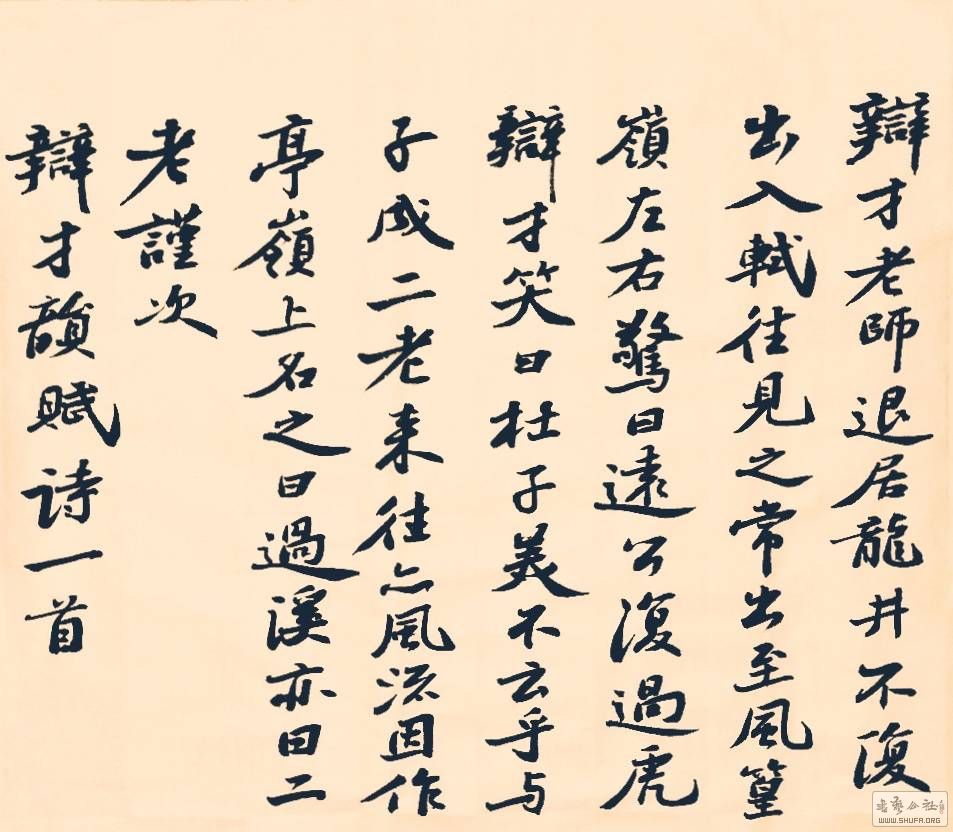 辯才老師退居龍井不復
出入軾往見之常出至風篁
嶺左右驚曰遠公復過虎
辯才笑曰杜子美不云乎与
子成二老来往亦風流因作
亭嶺上名之曰過溪亦曰二
老謹次
辯才韻賦诗一首
WWW.SHUFA.ORG